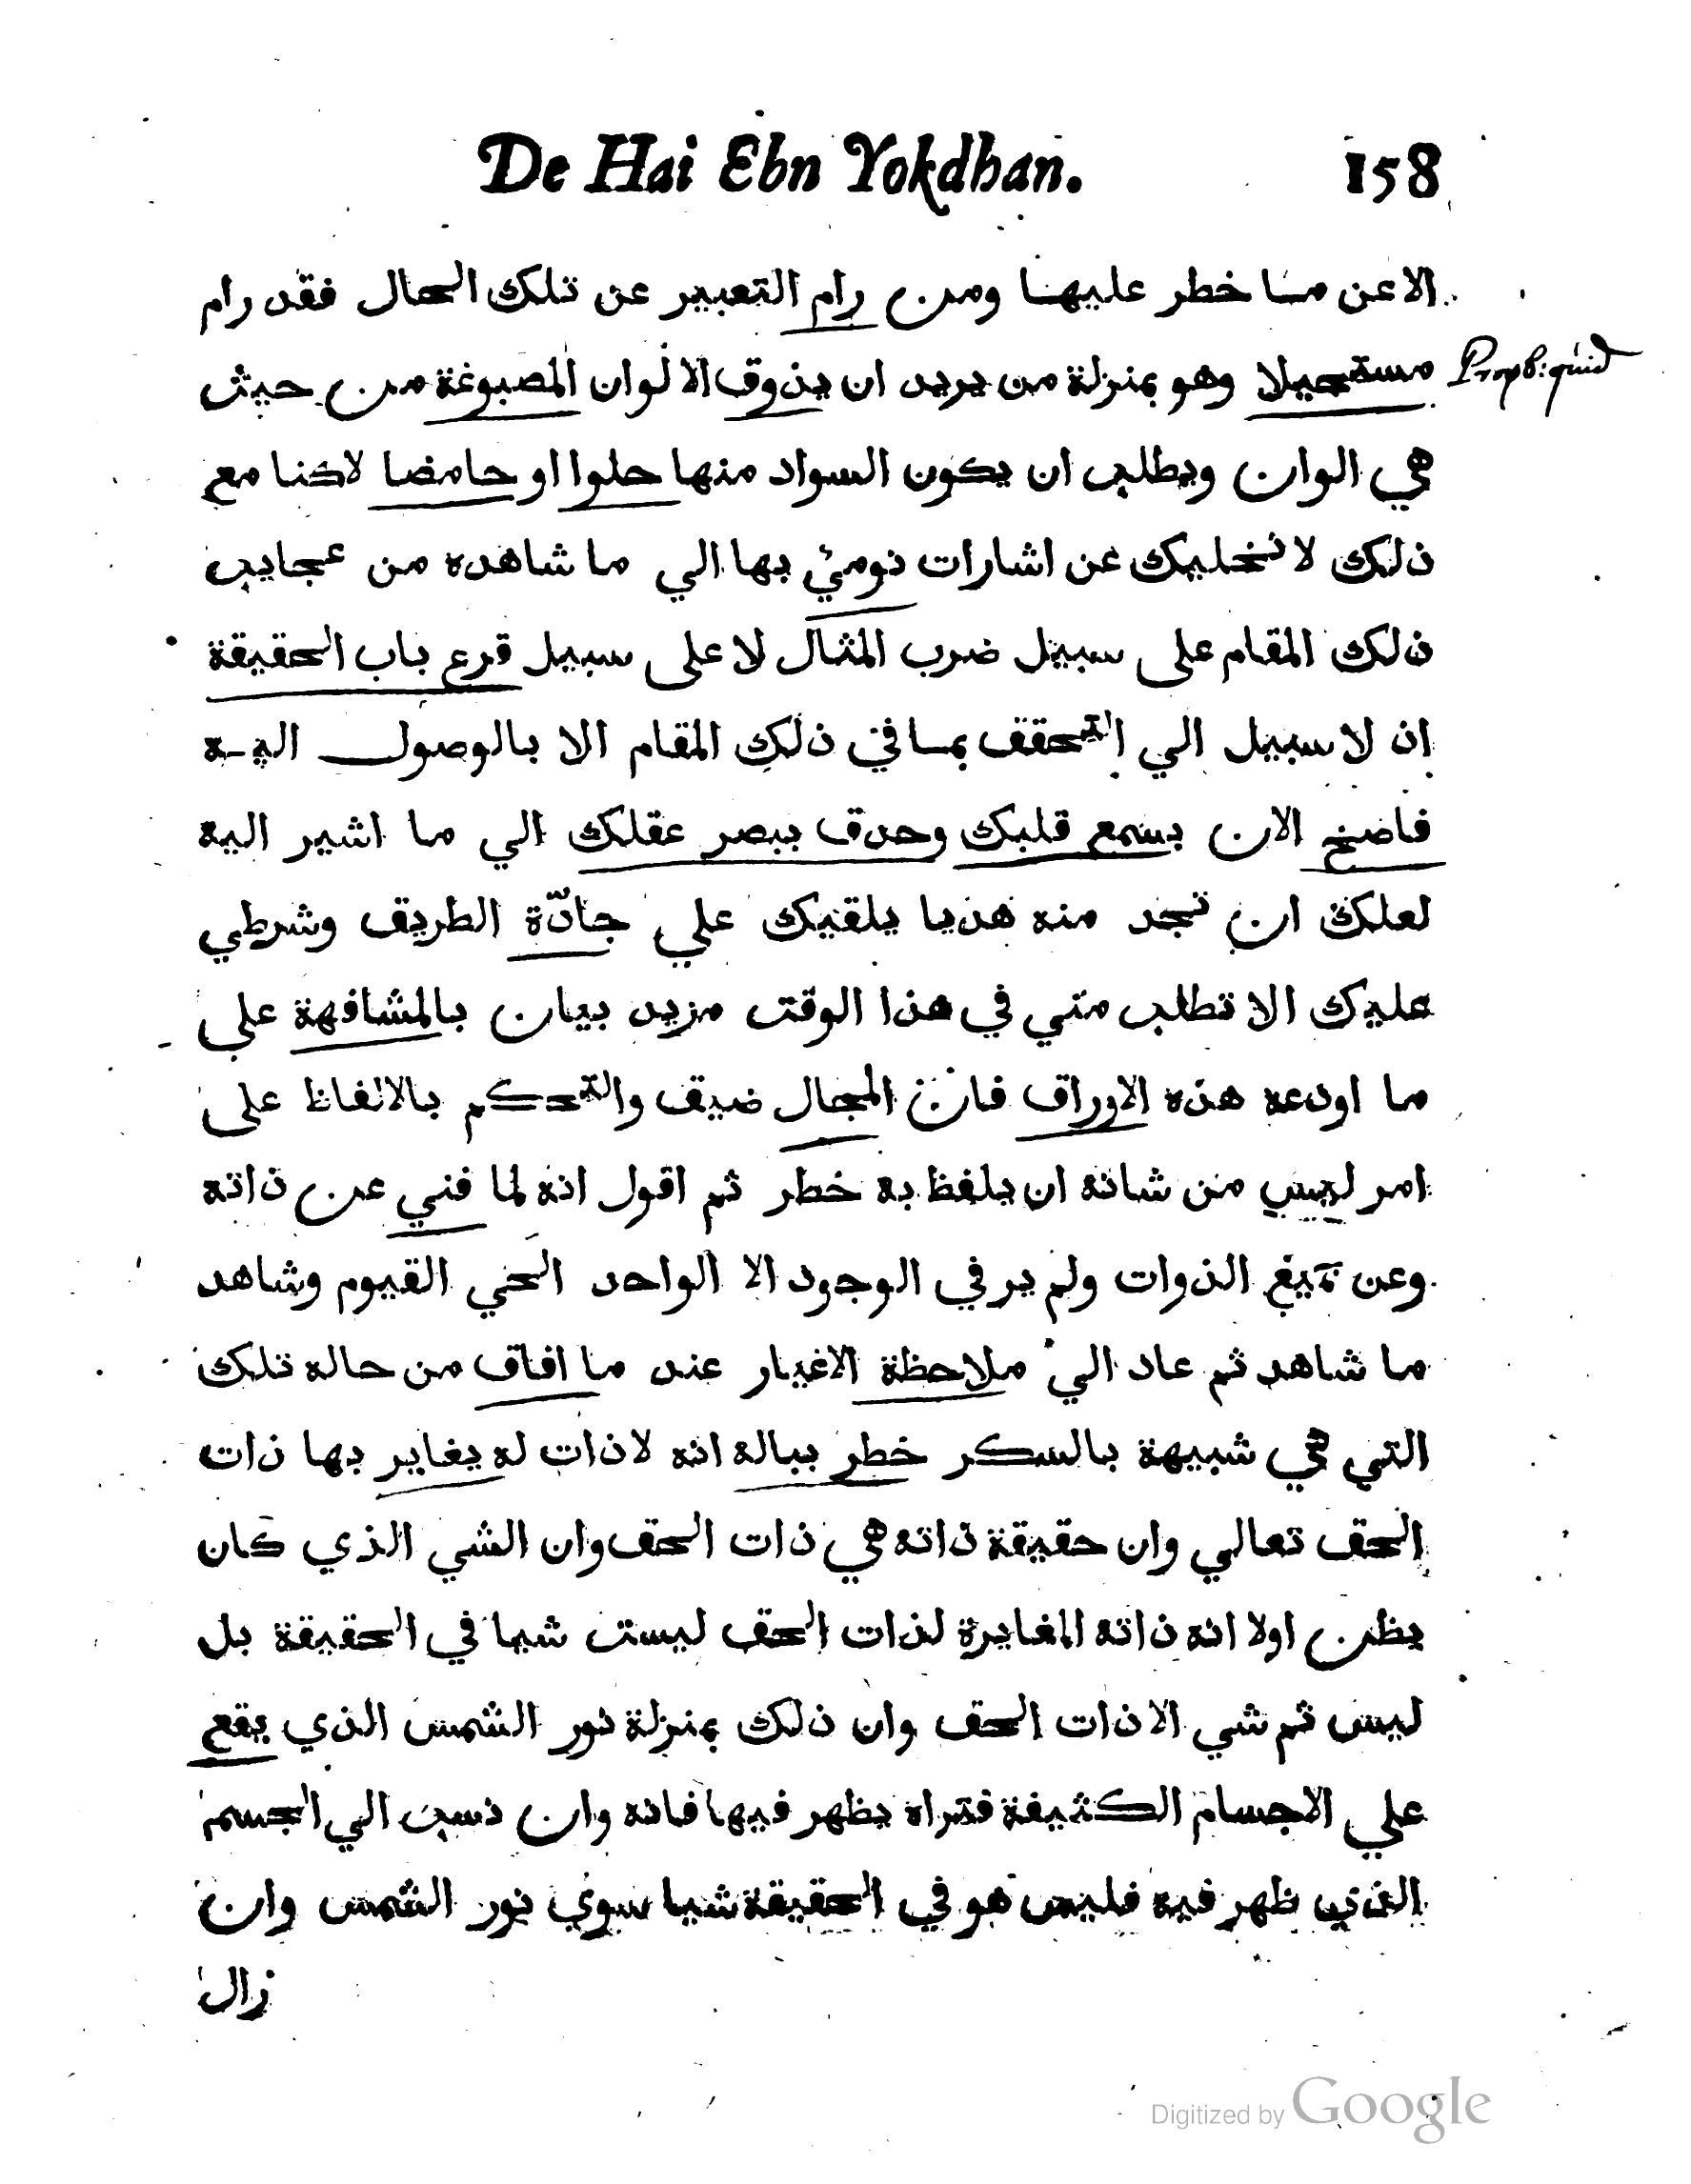 De Hai Ebn Yokdhan. 158
الا عن ما خطر عليها ومن رام التعبير عن تلك الحال فقد رام
مستحيلا وهو بمنزلة من يريد ان يذوق الالوان المصبوغة من حيث
هي الوان ويطلب ان يكون السواد منها حلوا او حامضا لاكنا مع
ذلك لا نخليك عن اشارات نومئ بها الي ما شاهده من عجايب
ذلك المقام على سبيل ضرب المثال لا على سبيل قرع باب الحقيقة
ان لا سبيل الي التحقق بما في ذلك المقام الا بالوصول اليه
فاصخ الان بسمع قلبك وحدق ببصر عقلك الي ما اشير اليه
لعلك ان تجد منه هديا يلقيك علي جادّة الطريق وشرطي
عليك الا تطلب مني في هذا الوقت مزيد بيان بالمشافهة علي
ما اودعه هذه الاوراق فان المجال ضيق والتحكم بالالفاظ على
امر ليس من شانه ان يلفظ به خطر ثم اقول انه لما فني عن ذاته
وعن جميع الذوات ولم ير في الوجود الا الواحد الحي القيوم وشاهد
ما شاهد ثم عاد الي ملاحظة الاغيار عند ما افاق من حاله تلك
التي هي شبيهة بالسكر خطر بباله انه لا ذات له يغاير بها ذات
الحق تعالي وان حقيقة ذاته هي ذات الحق وان الشي الذي كان
يظن اولا انه ذاته المغايرة لذات الحق ليست شيا في الحقيقة بل
ليس ثم شي الا ذات الحق وان ذلك بمنزلة نور الشمس الذي يقع
علي الاجسام الكثيفة فتراه يظهر فيها فانه وان نسب الي الجسم
الذي ظهر فيه فليس هو في الحقيقة شيا سوي نور الشمس وان
زال
Digitized by Google